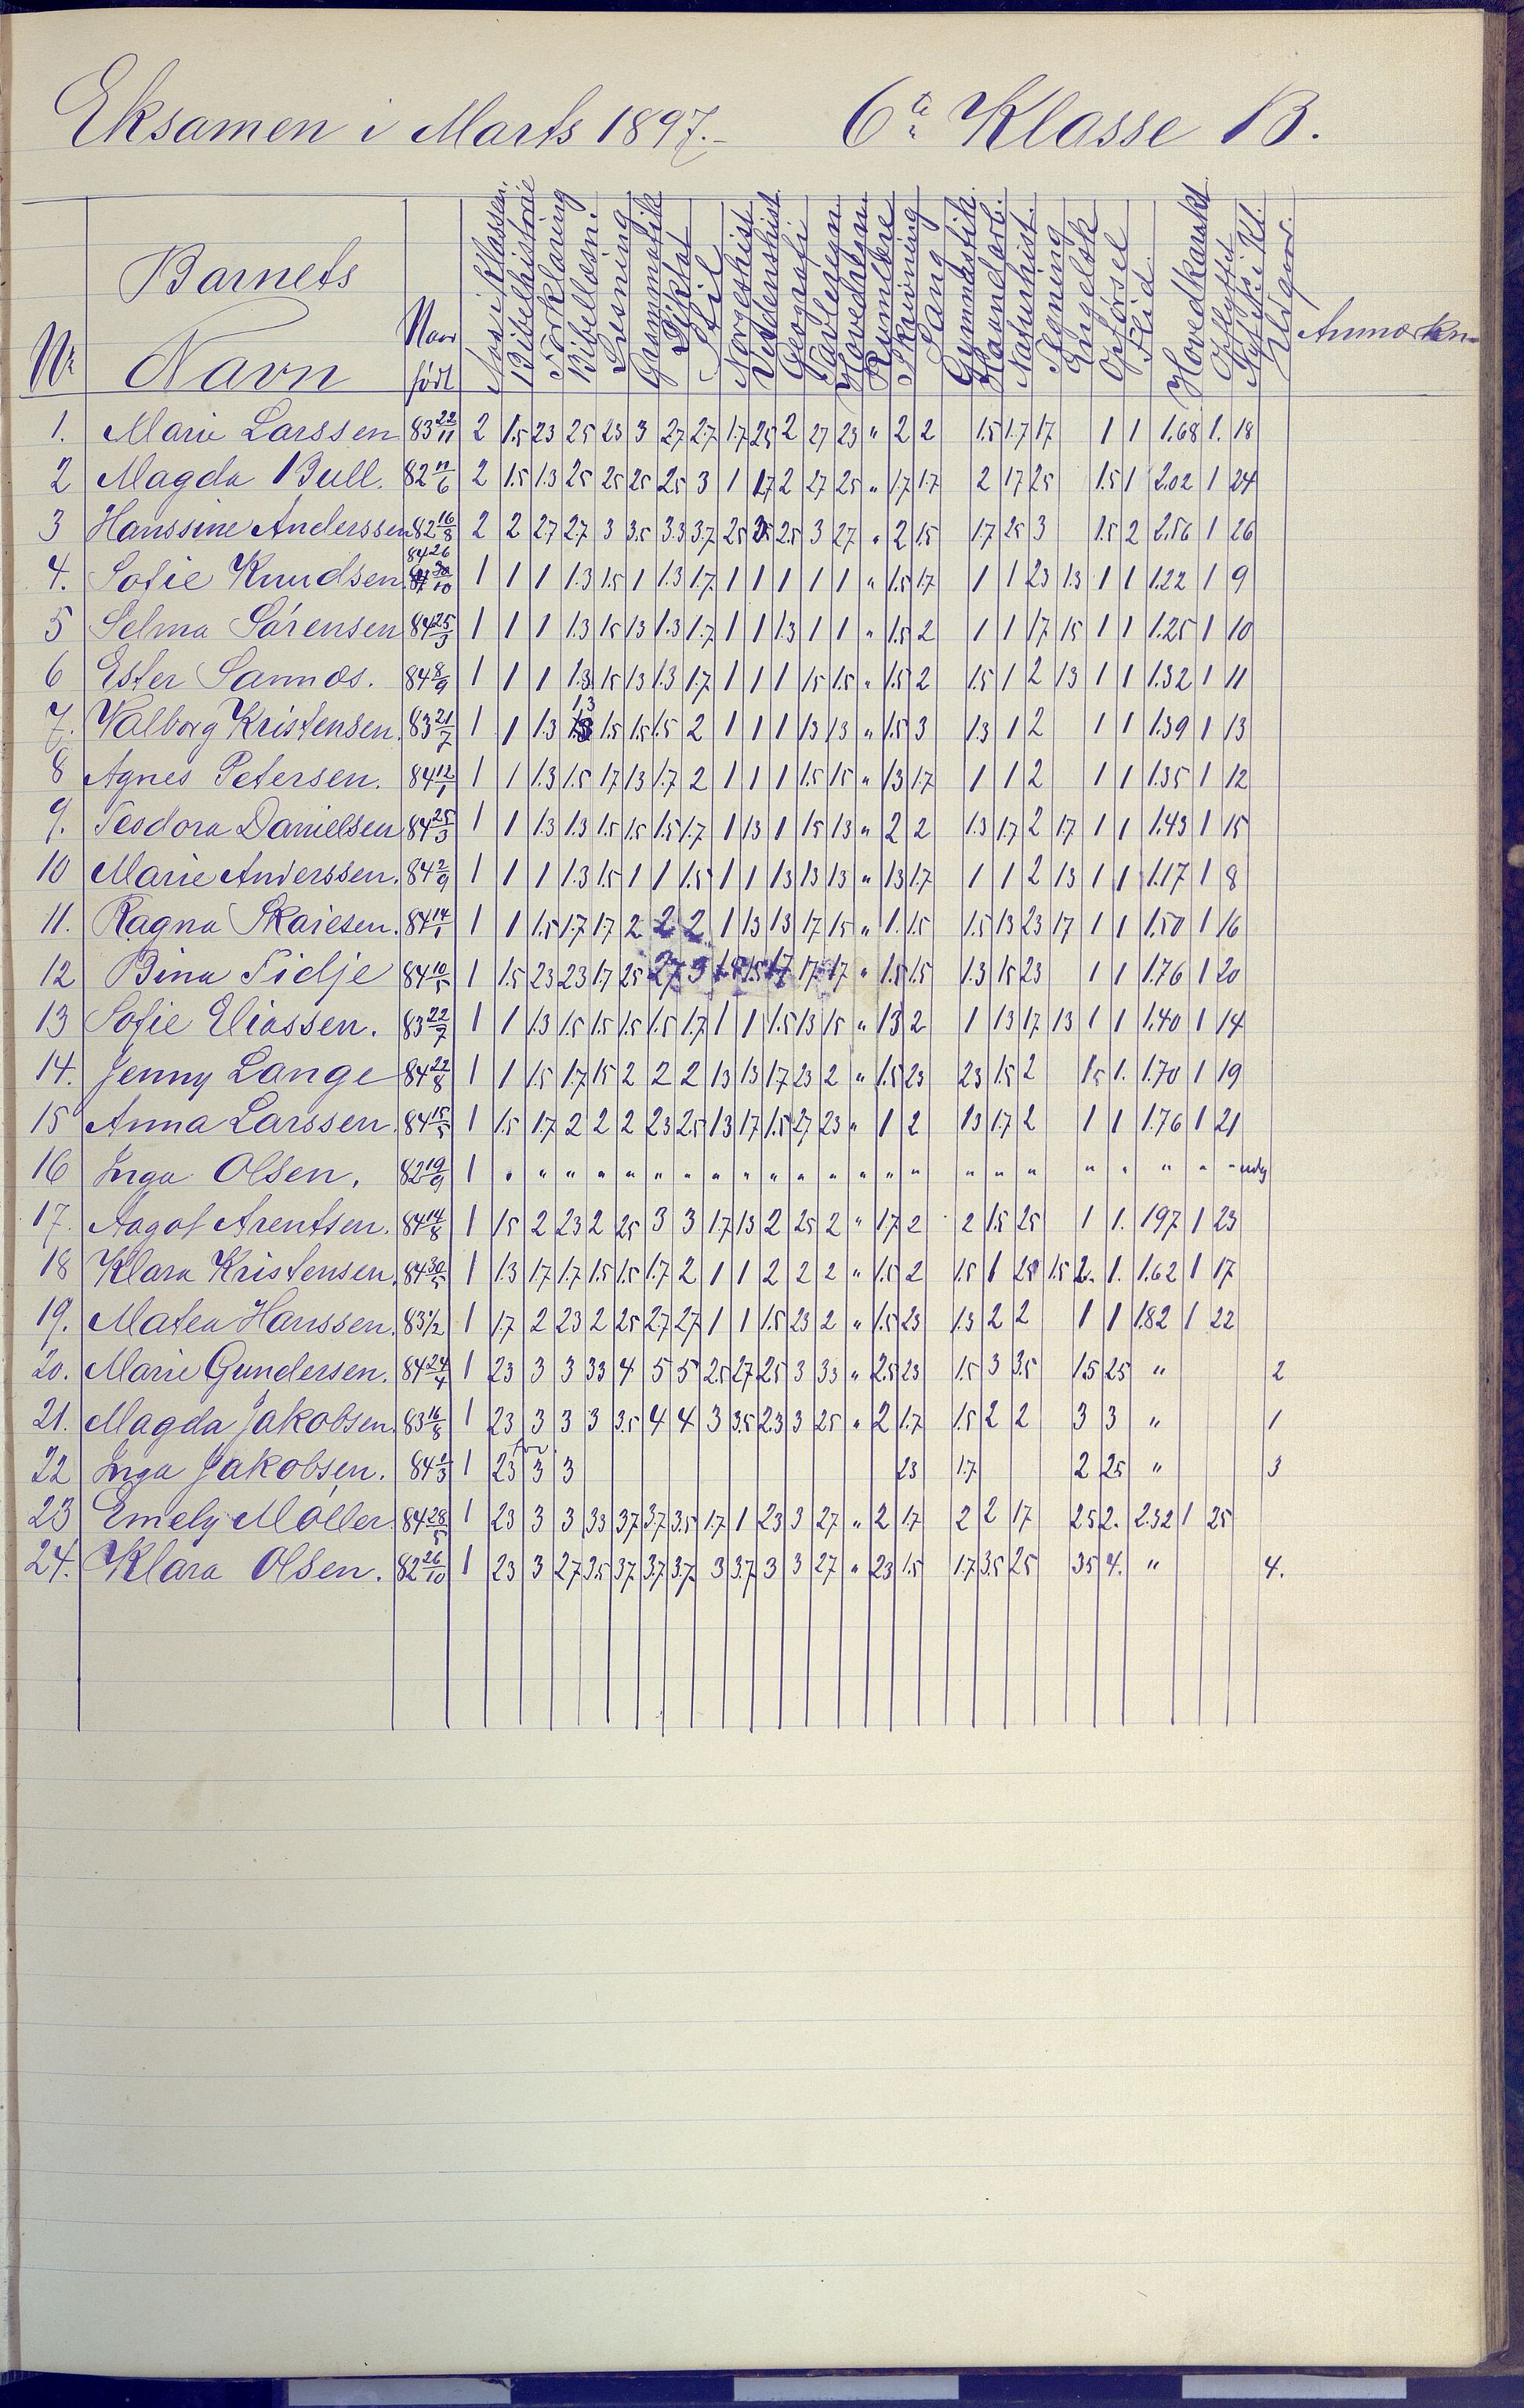 Eksamen i Marts 1897.- 6te Klasse B.
Nr Barnets Navn Naar født Aar i Klassen. Bibelhistorie Forklaring Bibellæsn. Læsning Grammatik Diktat Stil Norgeshist Verdenshist Geografi Tavleregn Hovedregn Rumlære Skrivning Sang Gymnastik Haandarb. Naturhist. Tegning Engelsk Opførsel Flid Hovedkarakt. Opflyttet Nyttet i Kl. Udgaar. Anmærkn.
1. Marie Larssen 83 22/11 2 1.5 23 25 23 3 27 2.7 1.7 25 2 27 23 " 2 2 1.5 1.7 17 1 1 1.68 1. 18
2 Magda Bull. 82 11/6 2 1.5 1.3 25 25 25 25 3 1 17 2 27 25 " 1.7 1.7 2 17 25 1.5 1 2.02 1 24
3 Hanssine Anderssen 82 16/8 2 2 27 2.7 3 3.5 3.3 3.7 25 25 2.5 3 27 " 2 1.5 1.7 25 3 1.5 2 2.56 1 26
4. Sofie Knudsen 84 26/10 1 1 1 1.3 1.5 1 1.3 1.7 1 1 1 1 1 " 1.5 1.7 1 1 23 1.3 1 1 1.22 1 9
5 Selma Sørensen 84 25/3 1 1 1 1.3 15 13 1.3 1.7 1 1 1.3 1 1 " 1.5 2 1 1 17 15 1 1 1.25 1 10
6 Ester Sannæs. 84 8/9 1 1 1 1.3 15 13 1.3 1.7 1 1 1 15 1.5 " 1.5 2 1.5 1 2 13 1 1 1.32 1 11
7. Valborg Kristensen. 83 21/7 1 1 1.3 1.3 1.5 1.5 1.5 2 1 1 1 13 13 " 1.5 3 1.3 1 2 1 1 1.39 1 13
8 Agnes Petersen. 84 12/1 1 1 1.3 1.5 17 13 1.7 2 1 1 1 1.5 15 " 13 1.7 1 1 2 1 1 1.35 1 12
9. Teodora Danielsen 84 25/3 1 1 1.3 1.3 1.5 1.5 1.5 1.7 1 13 1 15 13 " 2 2 1.3 1.7 2 1.7 1 1 1.43 1 15
10 Marie Anderssen. 84 2/9 1 1 1 1.3 1.5 1 1 1.5 1 1 13 13 13 " 13 1.7 1 1 2 13 1 1 1.17 1 8
11. Ragna Skaiesen. 84 14/1 1 1 1.5 1.7 1.7 2 2 2 1 13 13 17 15 " 1. 1.5 1.5 13 23 17 1 1 1.50 1 16
12 Bina Tidje 84 10/5 1 1.5 23 23 1.7 25 27 3 1.5 1.5 17 17 17 " 1.5 1.5 1.3 15 23 1 1 1.76 1 20
13 Sofie Eliassen. 83 22/7 1 1 1.3 1.5 1.5 1.5 1.5 1.7 1 1 1.5 13 15 " 13 2 1 13 17 13 1 1 1.40 1 14
14. Jenny Lange 84 22/8 1 1 1.5 1.7 15 2 2 2 13 13 17 23 2 " 1.5 23 23 1.5 2 15 1. 1.70 1 19
15 Anna Larssen. 84 15/5 1 1.5 1.7 2 2 2 23 2.5 13 17 1.5 27 23 " 1 2 13 1.7 2 1 1 1.76 1 21
16 Inga Olsen. 82 19/9 1 " " " " " " " " " " " " " " " " " " " " " " " udg
17. Aagot Arentsen. 84 14/8 1 15 2 23 2 25 3 3 1.7 13 2 25 2 " 1.7 2 2 1.5 25 1 1. 197 1 23
18 Klara Kristensen. 84 30/5 1 1.3 1.7 1.7 1.5 1.5 1.7 2 1 1 2 2 2 " 1.5 2 1.5 1 25 1.5 2. 1. 1.62 1 17
19. Matea Hanssen. 83 1/2 1 1.7 2 23 2 25 2.7 27 1 1 1.5 23 2 " 1.5 23 1.3 2 2 1 1 1.82 1 22
20. Marie Gundersen. 84 24/4 1 23 3 3 33 4 5 5 25 27 25 3 33 " 2.5 23 1.5 3 3.5 1.5 25 " 2
21. Magda Jakobsen. 83 16/8 1 23 3 3 3 3.5 4 4 3 3.5 23 3 25 " 2 1.7 1.5 2 2 3 3 " 1
22 Inga Jakobsen. 84 2/3 1 23 3 3 23 1.7 2 25 " 3
23 Emely Møller 84 28/5 1 23 3 3 33 37 3.7 3.5 1.7 1 23 3 27 " 2 1.7 2 2 17 25 2. 2.32 1 25
24. Klara Olsen. 82 26/10 1 23 3 27 3.5 37 3.7 3.7 3 3.7 3 3 27 " 23 1.5 1.7 3.5 25 35 4. " 4.